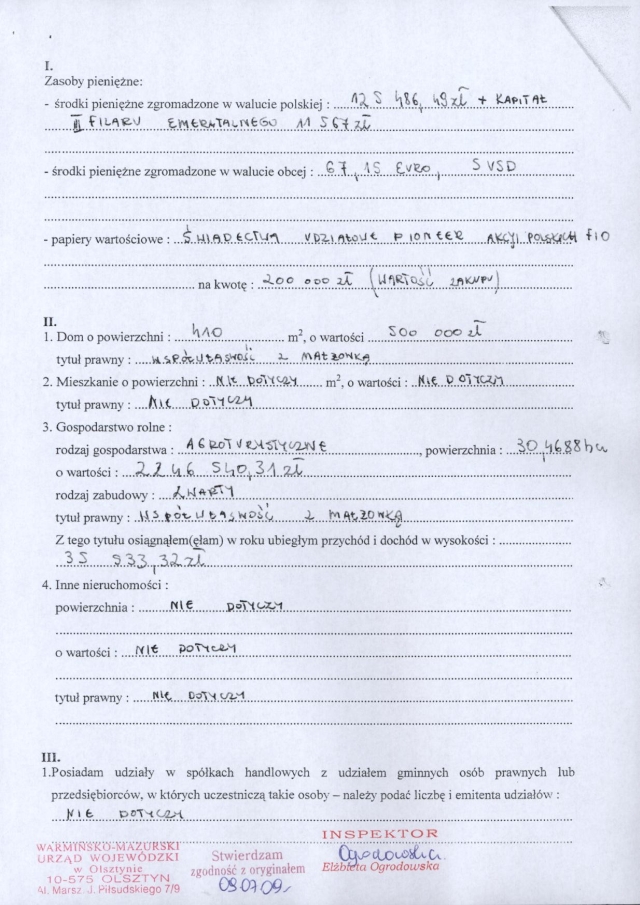 I.
Zasoby pieniężne:
- środki pieniężne zgromadzone w walucie polskiej : ....125 486, 49 zł + KAPITAŁ
III FILARU EMERYTALNEGO 11 567 zł
- środki pieniężne zgromadzone w walucie obcej : 67,15 EURO, 5 USD
- papiery wartościowe : ŚWIADECTWA UDZIAŁOWE PIONEER AKCJI POLSKICH FIO
na kwotę : 200 000 zł (WARTOŚĆ ZAKUPU)
II.
1. Dom o powierzchni : 410 m², o wartości 500 000 zł
tytuł prawny : WSPÓŁWŁASNOŚĆ Z MAŁŻONKĄ
2. Mieszkanie o powierzchni : NIE DOTYCZY m², o wartości : NIE DOTYCZY
tytuł prawny : NIE DOTYCZY
3. Gospodarstwo rolne :
rodzaj gospodarstwa : AGROTURYSTYCZNE, powierzchnia : 30,4688 ha
o wartości : 2 246 540,31 zł
rodzaj zabudowy : ZWARTY
tytuł prawny : WSPÓŁWŁASNOŚĆ Z MAŁŻONKĄ
Z tego tytułu osiągnąłem(ęłam) w roku ubiegłym przychód i dochód w wysokości :
35 933,32 zł
4. Inne nieruchomości :
powierzchnia : NIE DOTYCZY
o wartości : NIE DOTYCZY
tytuł prawny : NIE DOTYCZY
III.
1.Posiadam udziały w spółkach handlowych z udziałem gminnych osób prawnych lub
przedsiębiorców, w których uczestniczą takie osoby – należy podać liczbę i emitenta udziałów :
NIE DOTYCZY
WARMIŃSKO-MAZURSKI
URZĄD WOJEWÓDZKI
w Olsztynie
10-575 OLSZTYN
Al. Marsz. J. Piłsudskiego 7/9
Stwierdzam
zgodność z oryginałem
09.07.09
INSPEKTOR
Ogrodowska
Elżbieta Ogrodowska